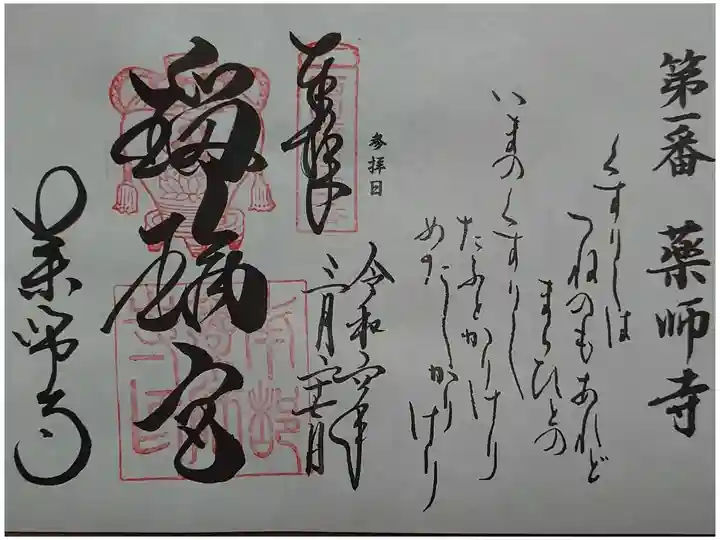 第一番 薬師寺
くすりしは
つねのもあれど
まらひとの
いまのくすりし
たふとかりけり
めだしかりけり
参拝日
令和六年
三月廿七日
奉拝
瑠璃宮
薬師寺